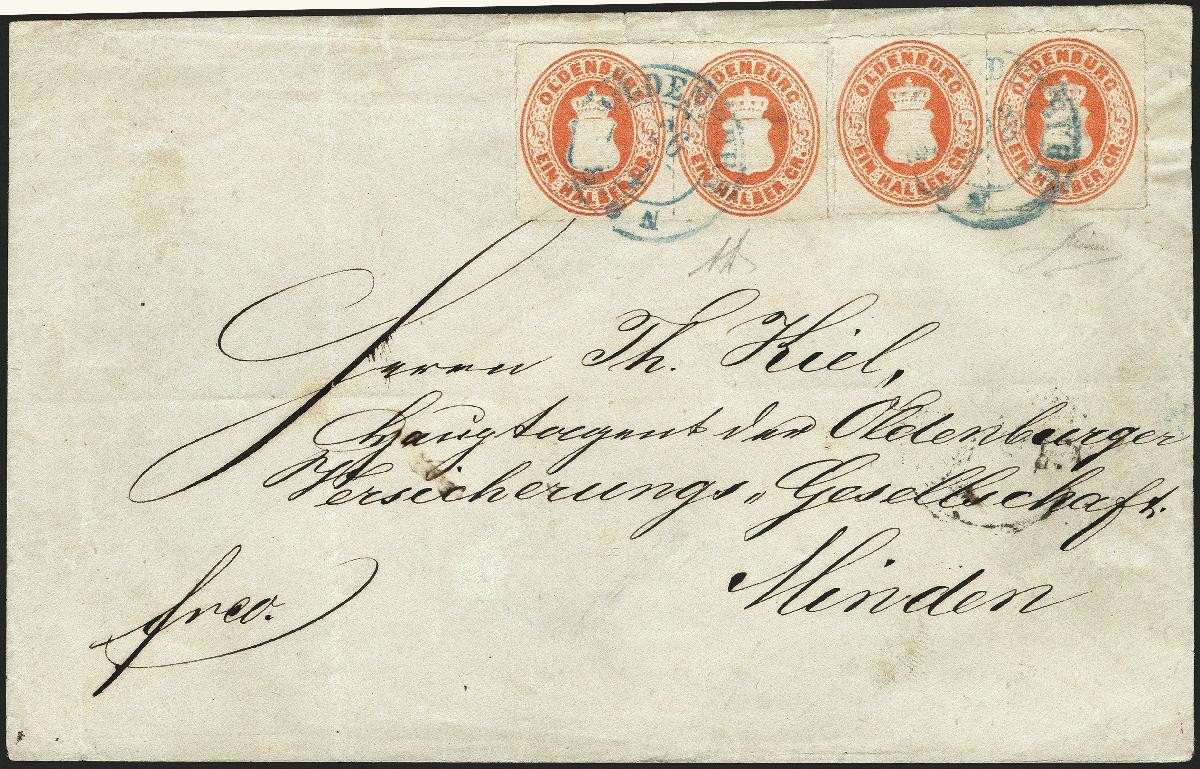 OLDENBURG EIN HALBER GR.
OLDENBURG EIN HALBER GR.
OLDENBURG EIN HALBER GR.
OLDENBURG EIN HALBER GR.
Herrn Th. Kiel,
Hauptagent der Oldenburger
Versicherungs„Gesellschaft.
Minden
frco.